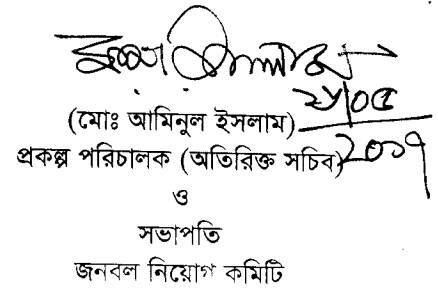 (মোঃ আমিনুল ইসলাম)
প্রকল্প পরিচালক (অতিরিক্ত সচিব)
ও
সভাপতি
জনবল নিয়োগ কমিটি